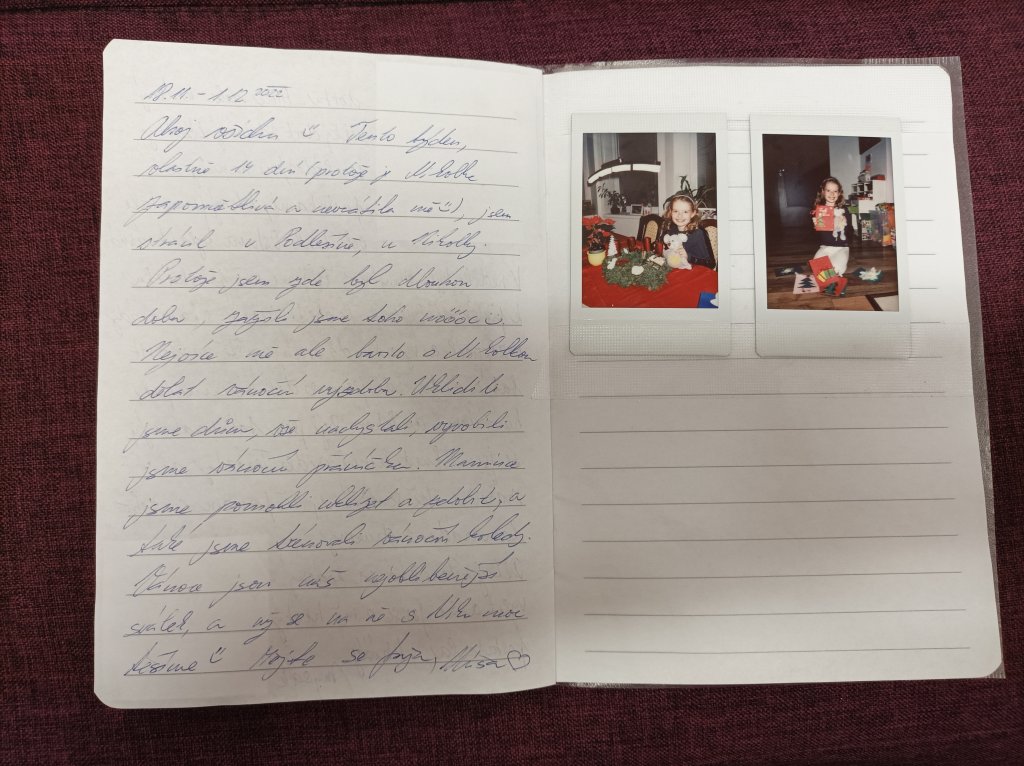 18.11. - 1.12 2022
Ahoj všichni Tento týden,
vlastně 14 dní (protože je Nikolka
zapomětlivá a nevrátila mě), jsem
strávil v Podlesíně, u Nikolky.
Protože jsem zde byl dlouhou
dobu, zažili jsme toho móóóc
Nejvíce mě ale bavilo s Nikolkou
dělat vánoční výzdobu. Uklidili
jsme dům, vše nachystali, vyrobili
jsme vánoční přáníčka. Mamince
jsme pomohli uklízet a zdobit, a
také jsme trénovali vánoční koledy.
Vánoce jsou náš nejoblíbenější
svátek, a už se na ně s Niki moc
těšíme Mějte se fajn, Míša